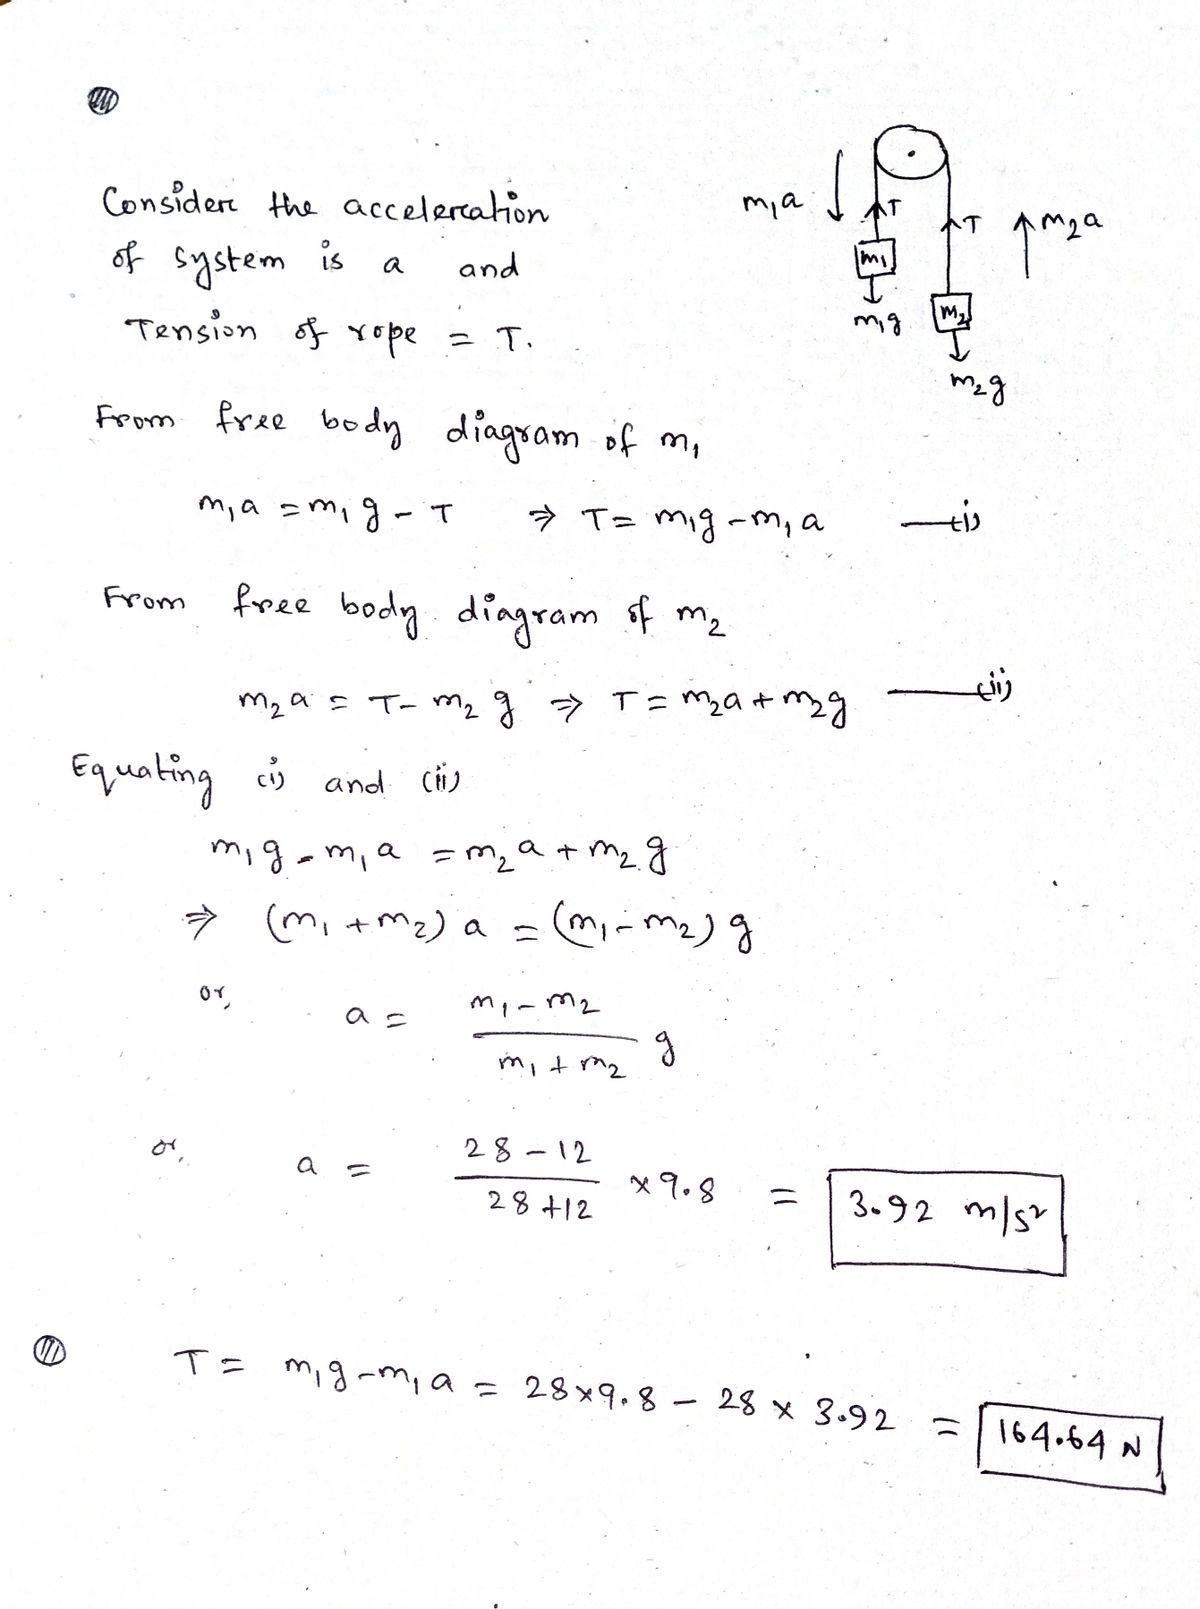 Consider the acceleration
of system is a and
Tension of rope = T.
m₁a
T
T
m₂a
m₁
m₁g
m₂
m₂g
From free body diagram of m₁
m₁a = m₁g - T ⇒ T = m₁g - m₁a —(i)
From free body diagram of m₂
m₂a = T - m₂g ⇒ T = m₂a + m₂g —(ii)
Equating (i) and (ii)
m₁g - m₁a = m₂a + m₂g
⇒ (m₁ + m₂) a = (m₁ - m₂) g
or, a = (m₁ - m₂)/(m₁ + m₂) g
or, a = (28 - 12)/(28 + 12) × 9.8 = 3.92 m/s²
T = m₁g - m₁a = 28×9.8 - 28 × 3.92 = 164.64 N